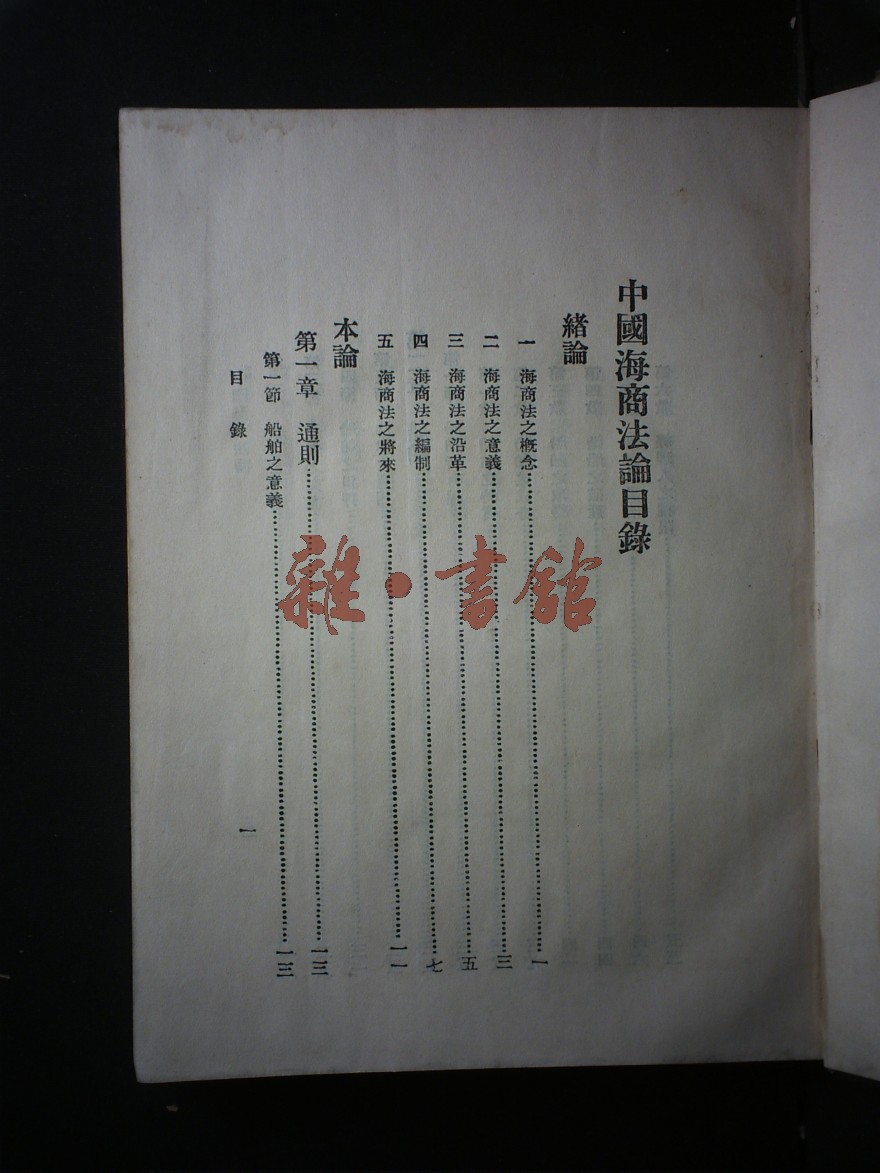 中國海商法論目錄
緒論
一 海商法之概念……一
二 海商法之意義……三
三 海商法之沿革……五
四 海商法之編制……七
五 海商法之將來……一一
本論
第一章 通則……一三
第一節 船舶之意義……一三
目錄
一
雜·書館